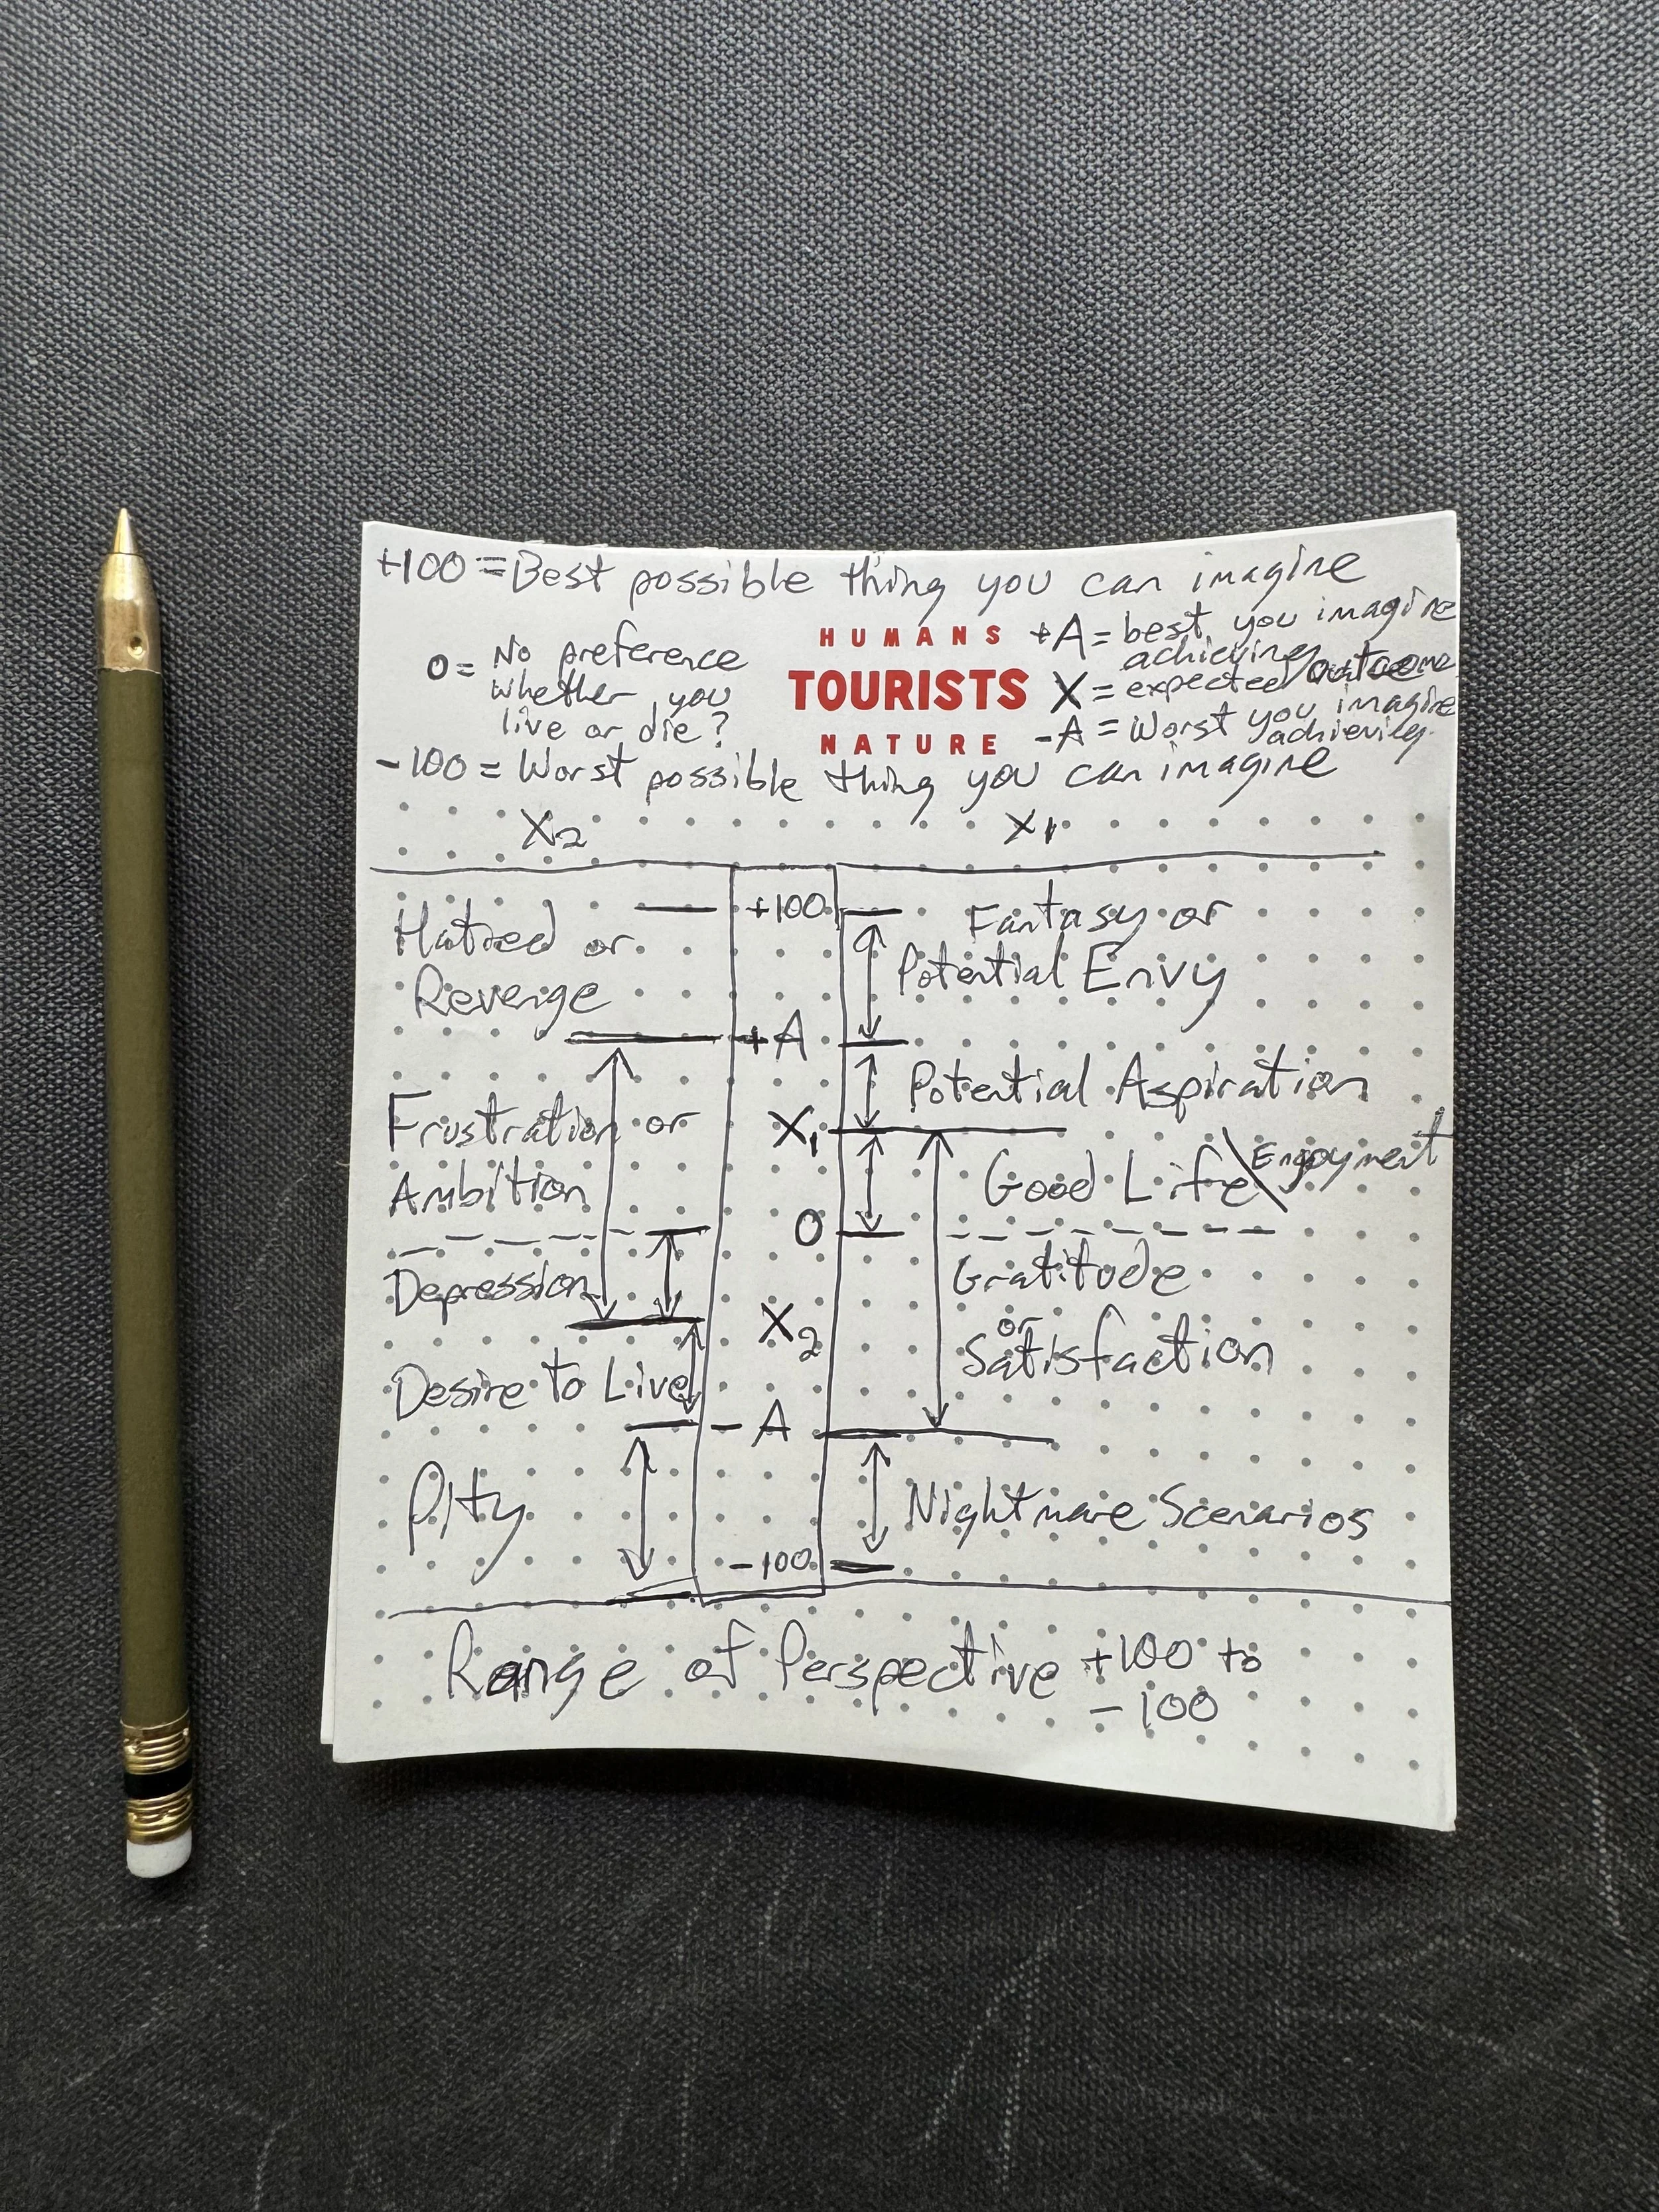 +100 = Best possible thing you can imagine
0 = No preference
whether you
live or die?
HUMANS
TOURISTS
NATURE
+A = best you imagine
achieving
X = expected outcome
-A = Worst you imagine
achieving.
-100 = Worst possible thing you can imagine
X2
X1
+100
Hatred or
Revenge
Fantasy or
Potential Envy
+A
Potential Aspiration
Frustration or
Ambition
X1
Good Life \ Enjoyment
0
Depression
Gratitude
or
Satisfaction
X2
Desire to Live
-A
Pity
Nightmare Scenarios
-100
Range of Perspective +100 to
-100